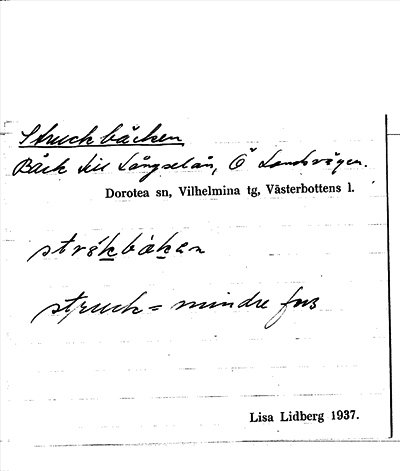 Struckbäcken
Bäck till Långselån, Ö Landsvägen.
Dorotea sn, Vilhelmina tg, Västerbottens l.
strökbäkan
struck = mindre fors
Lisa Lidberg 1937.